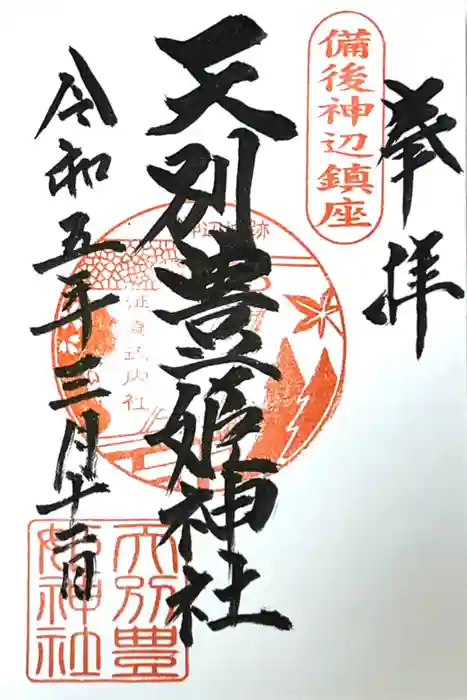 奉拝
備後神辺鎮座
天別豊姫神社
延喜式内社
令和五年三月十二日
天別豊
姫神社